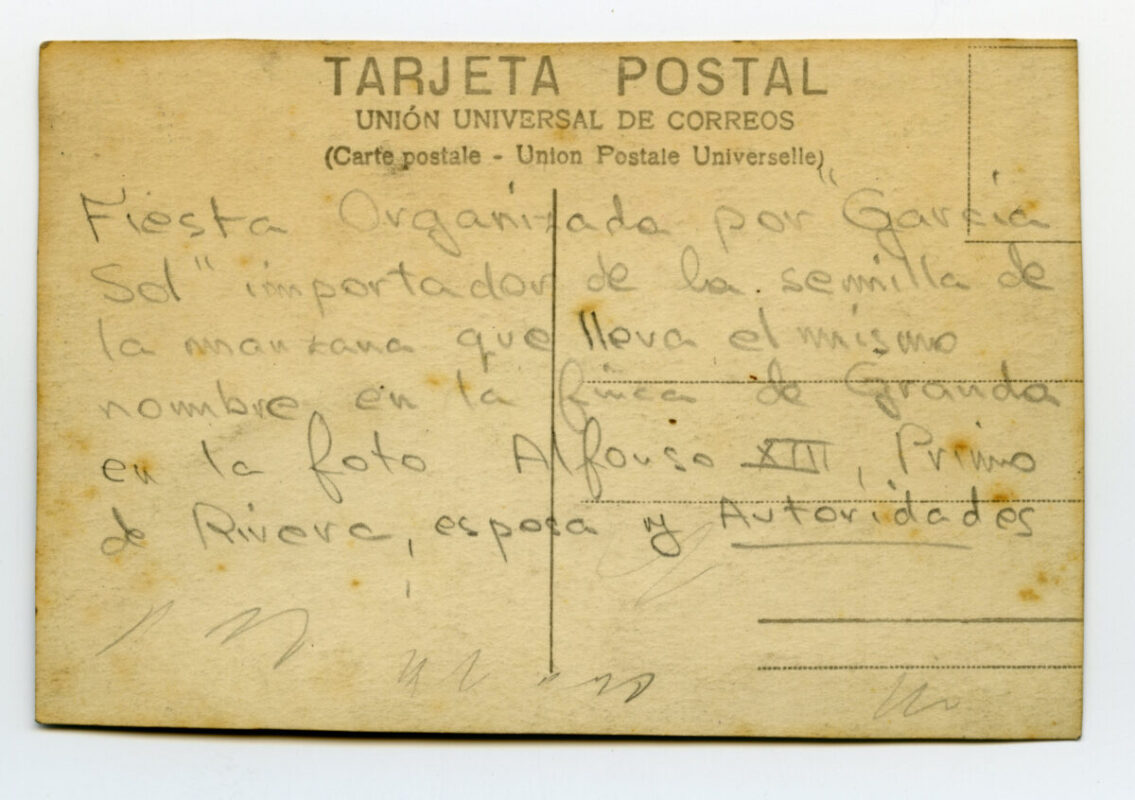 TARJETA POSTAL
UNIÓN UNIVERSAL DE CORREOS
(Carte postale - Union Postale Universelle)
Fiesta Organizada por "Garcia
Sol" importador de la semilla de
la manzana que lleva el mismo
nombre en la finca de Granda
en la foto Alfonso XIII, Primo
de Rivera, esposa y Autoridades